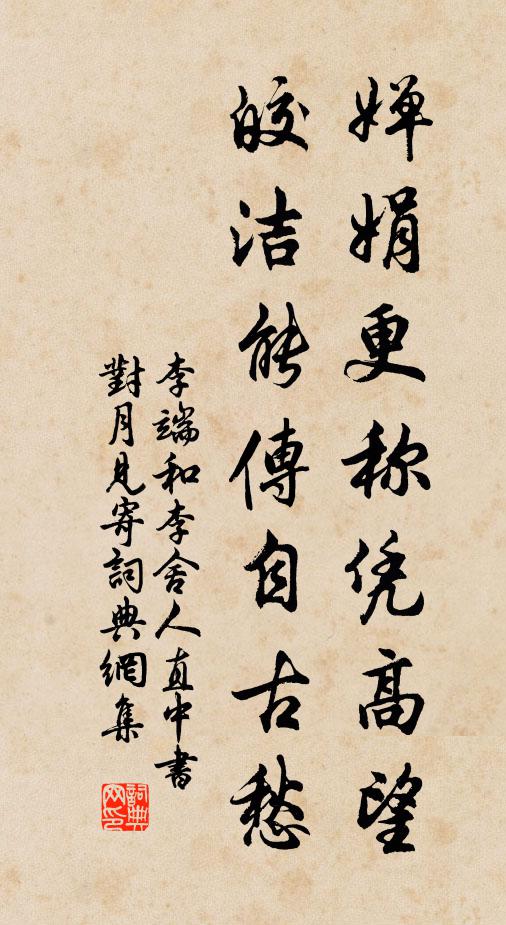 婵娟更称凭高望
皎洁能傳自古愁
李端和李舍人直中書
對月見寄詞典網集
詞典
网印